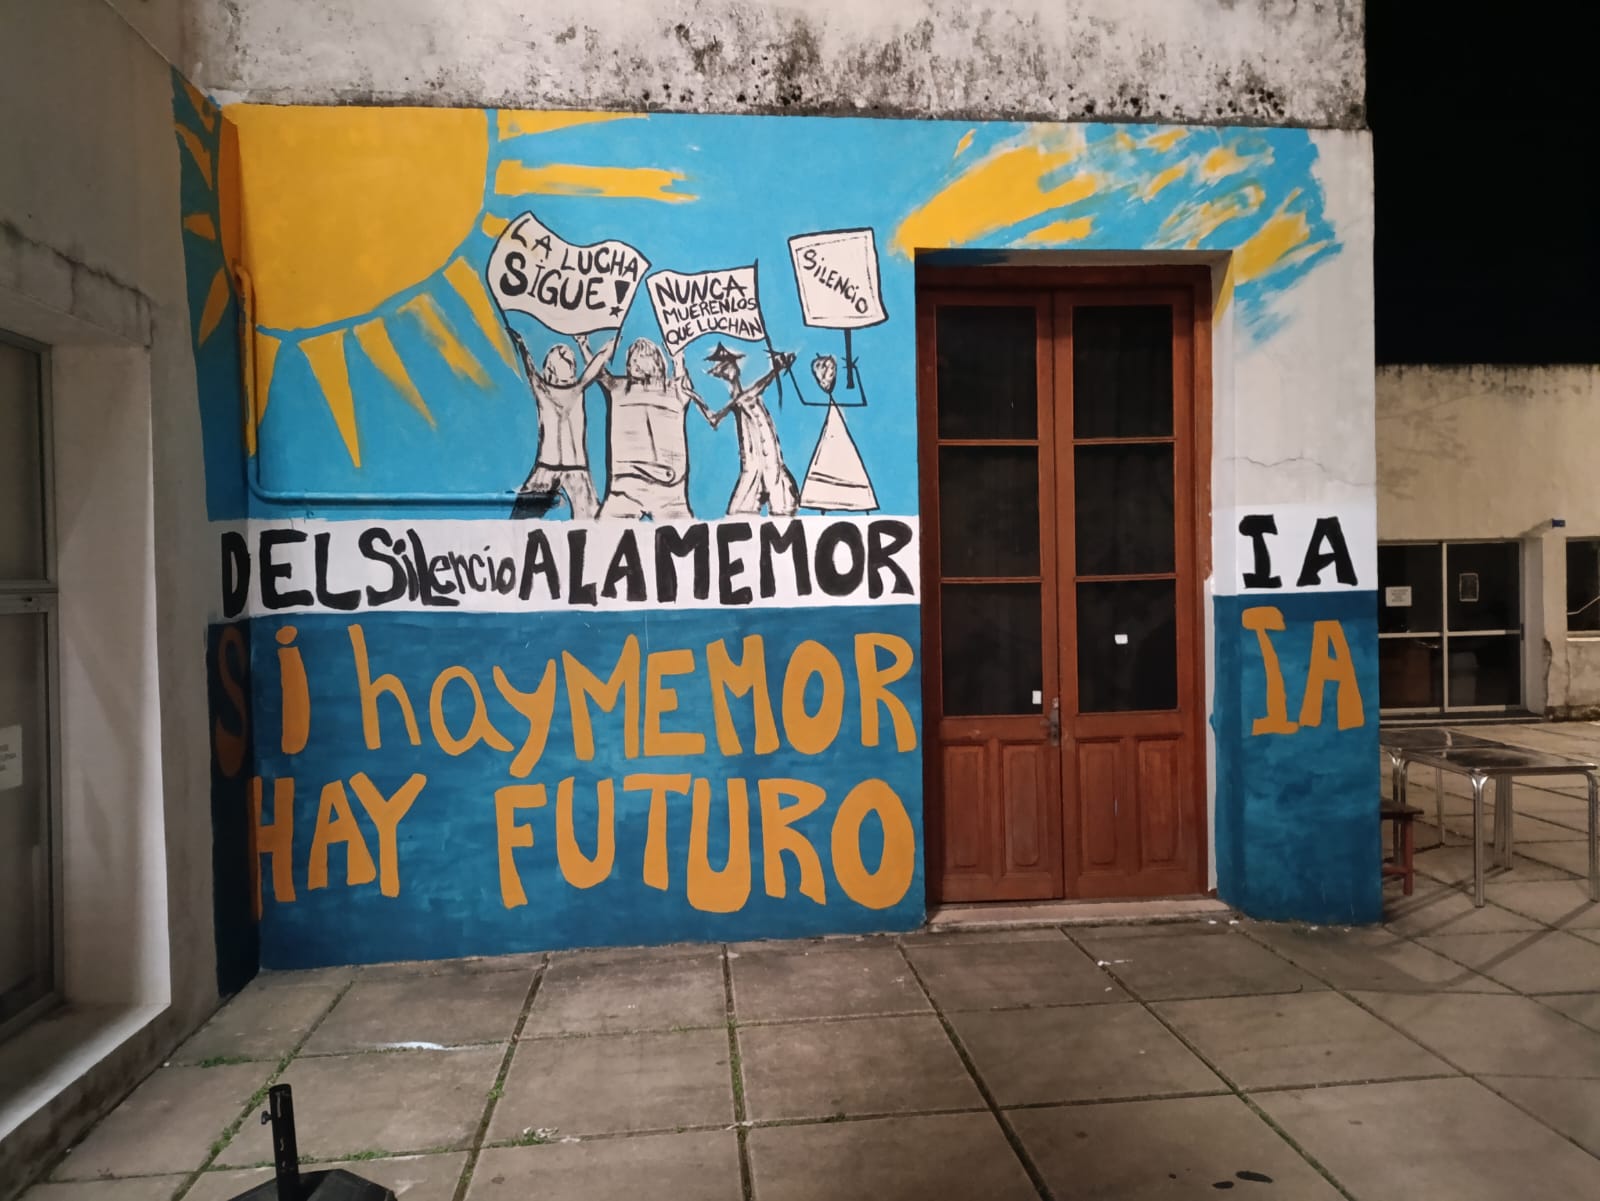 LA LUCHA
SIGUE!
NUNCA
MUEREN LOS
QUE LUCHAN
SILENCIO
DEL SiLencio A LA MEMORIA
Si hay MEMORIA
HAY FUTURO